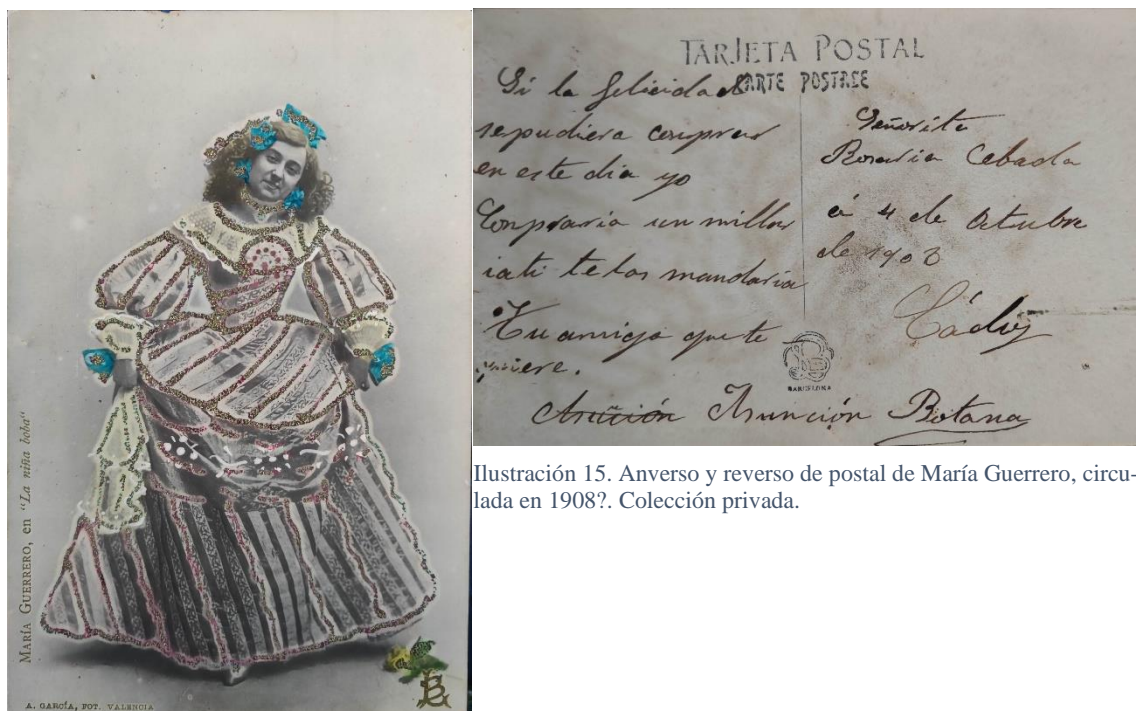 MARÍA GUERRERO, en "La niña boba"
A. GARCÍA, FOT. VALENCIA
TARJETA POSTAL
CARTE POSTALE
Si la felicidad
sepudiera comprar
en este dia yo
Compraria un millon
iati telos mandaria
Tu amiga que te
quiere.
Asuñión Asunción Botana
Señorita
Rosaria Cebada
á 4 de Octubre
de 1908
Cádiz
BARCELONA
Ilustración 15. Anverso y reverso de postal de María Guerrero, circu-
lada en 1908?. Colección privada.